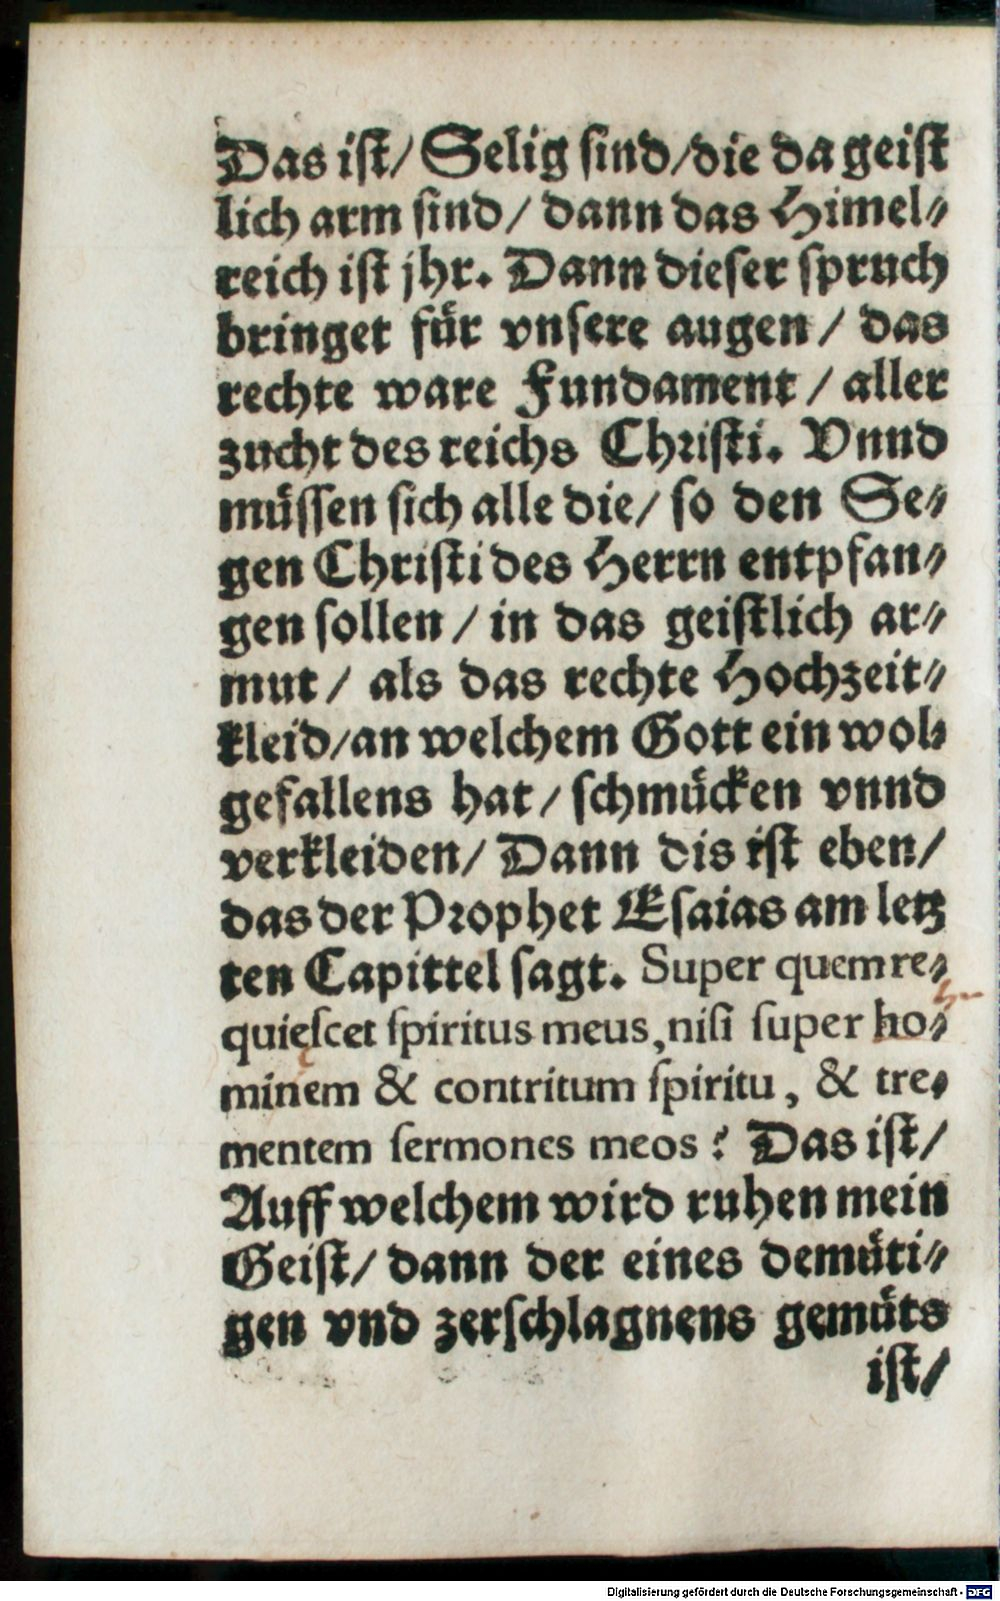 Das iſt/ Selig ſind/die da geiſt
lich arm ſind/ dann das Himel⸗
reich iſt jhr. Dann dieſer ſpruch
bringet für vnſere augen/ das
rechte ware Fundament/ aller
zucht des reichs Chriſti. Vnnd
müſſen ſich alle die/ ſo den Se⸗
gen Chriſti des Herrn entpfan⸗
gen ſollen/ in das geiſtlich ar⸗
mut/ als das rechte Hochzeit⸗
kleid/an welchem Gott ein wol⸗
gefallens hat/ ſchmücken vnnd
verkleiden/ Dann dis iſt eben/
das der Prophet Eſaias am letz
ten Capittel ſagt. Super quem re⸗
quieſcet ſpiritus meus, niſi ſuper ho⸗
minem & contritum ſpiritu, & tre⸗
mentem ſermones meos? Das iſt/
Auff welchem wird ruhen mein
Geiſt/ dann der eines demüti⸗
gen vnd zerſchlagnens gemüts
iſt/
Digitalisierung gefördert durch die Deutsche Forschungsgemeinschaft - DFG